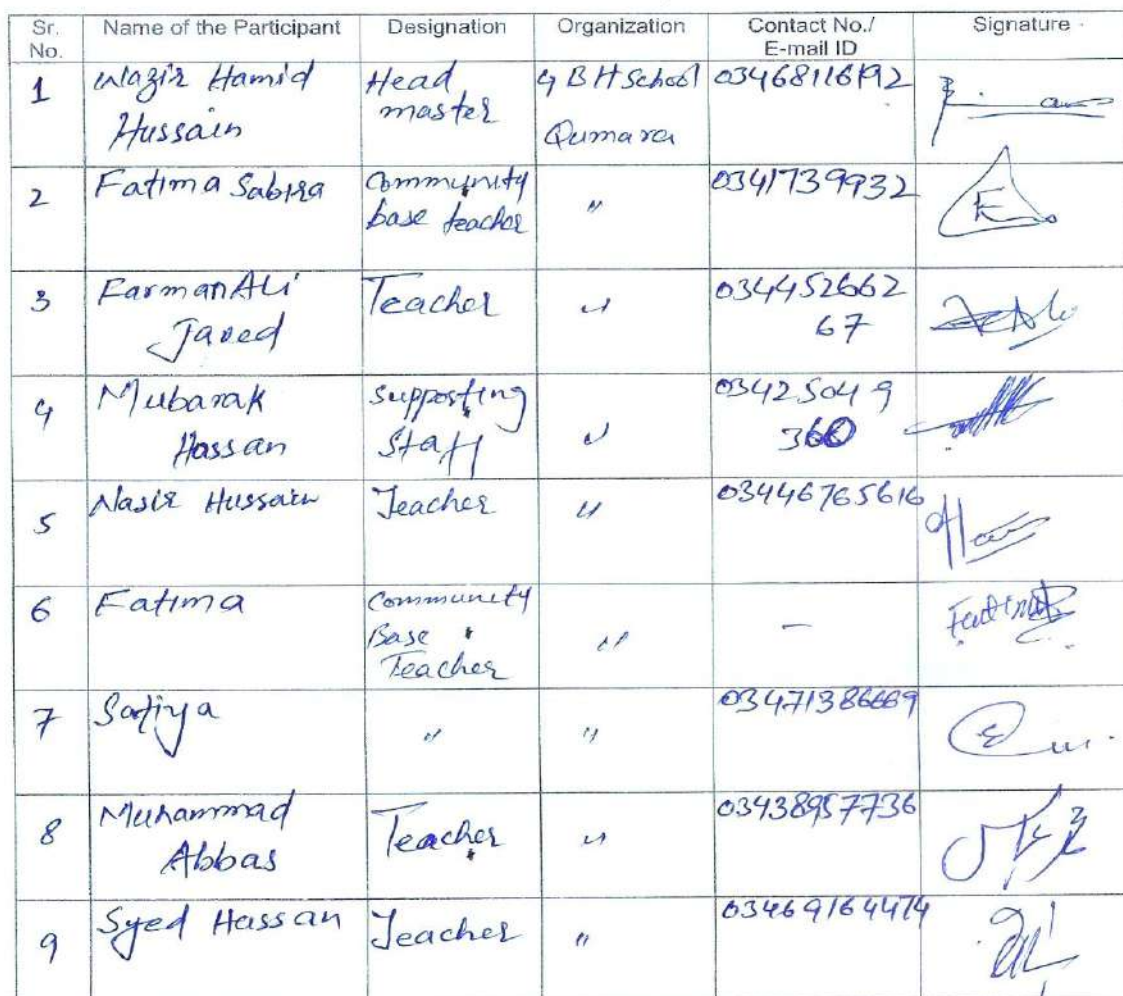 Sr. No. Name of the Participant Designation Organization Contact No./ E-mail ID Signature
1 Wazir Hamid Hussain Head master G B H School Qumara 03468116192
2 Fatima Sabira Community base teacher " 0341739932
3 Farman Ali Javed Teacher " 03445266267
4 Mubarak Hassan Supporting Staff " 03425049360
5 Nasir Hussain Teacher " 03446765616
6 Fatima Community Base Teacher " - Fatima
7 Safiya " " 03471386669
8 Muhammad Abbas Teacher " 03438957736
9 Syed Hassan Teacher " 03469164474